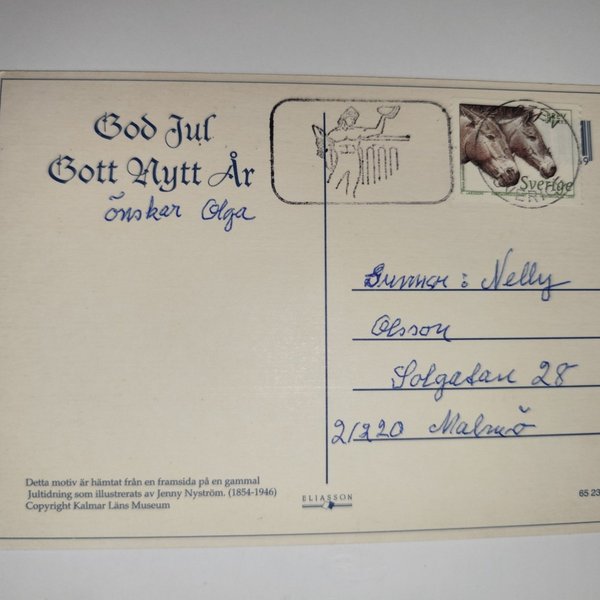 God Jul
Gott Nytt År
önskar Olga
Sverige
Gunnar o Nelly
Olsson
Solgatan 28
21220 Malmö
Detta motiv är hämtat från en framsida på en gammal
Jultidning som illustrerats av Jenny Nyström. (1854-1946)
Copyright Kalmar Läns Museum
ELIASSON
65 23